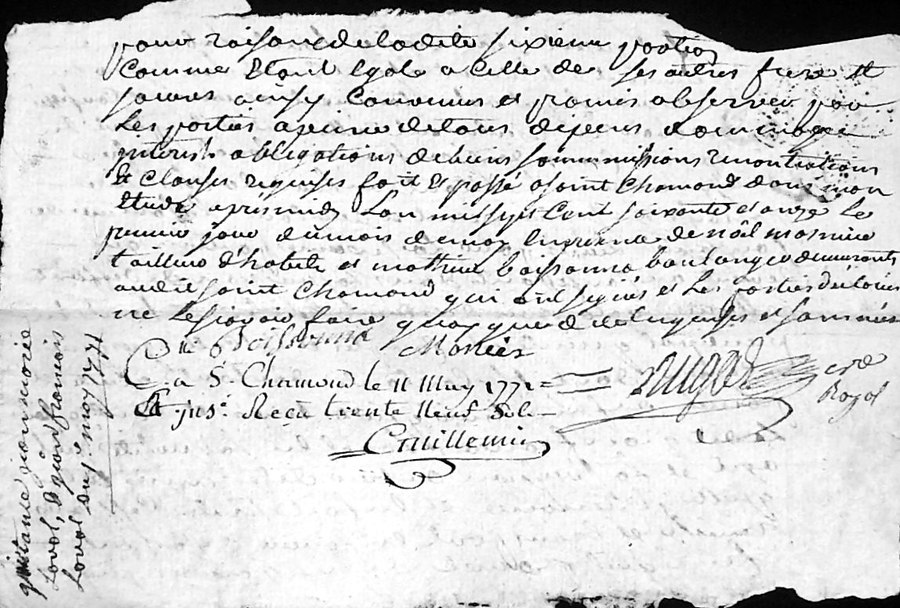 pour raison de ladite sixieme portion
comme etant egale a celle de ses autres frere et
soeurs ainsy convenus et promis observer par
les parties a peine de tous depens dommages
interests obligations de biens soummissions renontiations
et clauses requises fait et passé a saint chamond dans mon
etude apres midy l'an mil sept cent soixante et onze le
premier jour du mois de may en presence de noël mornieu
tailleur d'habits et mathieu boissonna boulanger demeurants
audit saint chamond qui ont signés et les parties declarées
ne le scavoir faire quoyque de ce enquises et sommées
Boissonna Mornieu
a St Chamond le 11 May 1771
Reçu trente neuf sols
Guillemin
royal
quittance
Loval, françois
Loval du may 1771